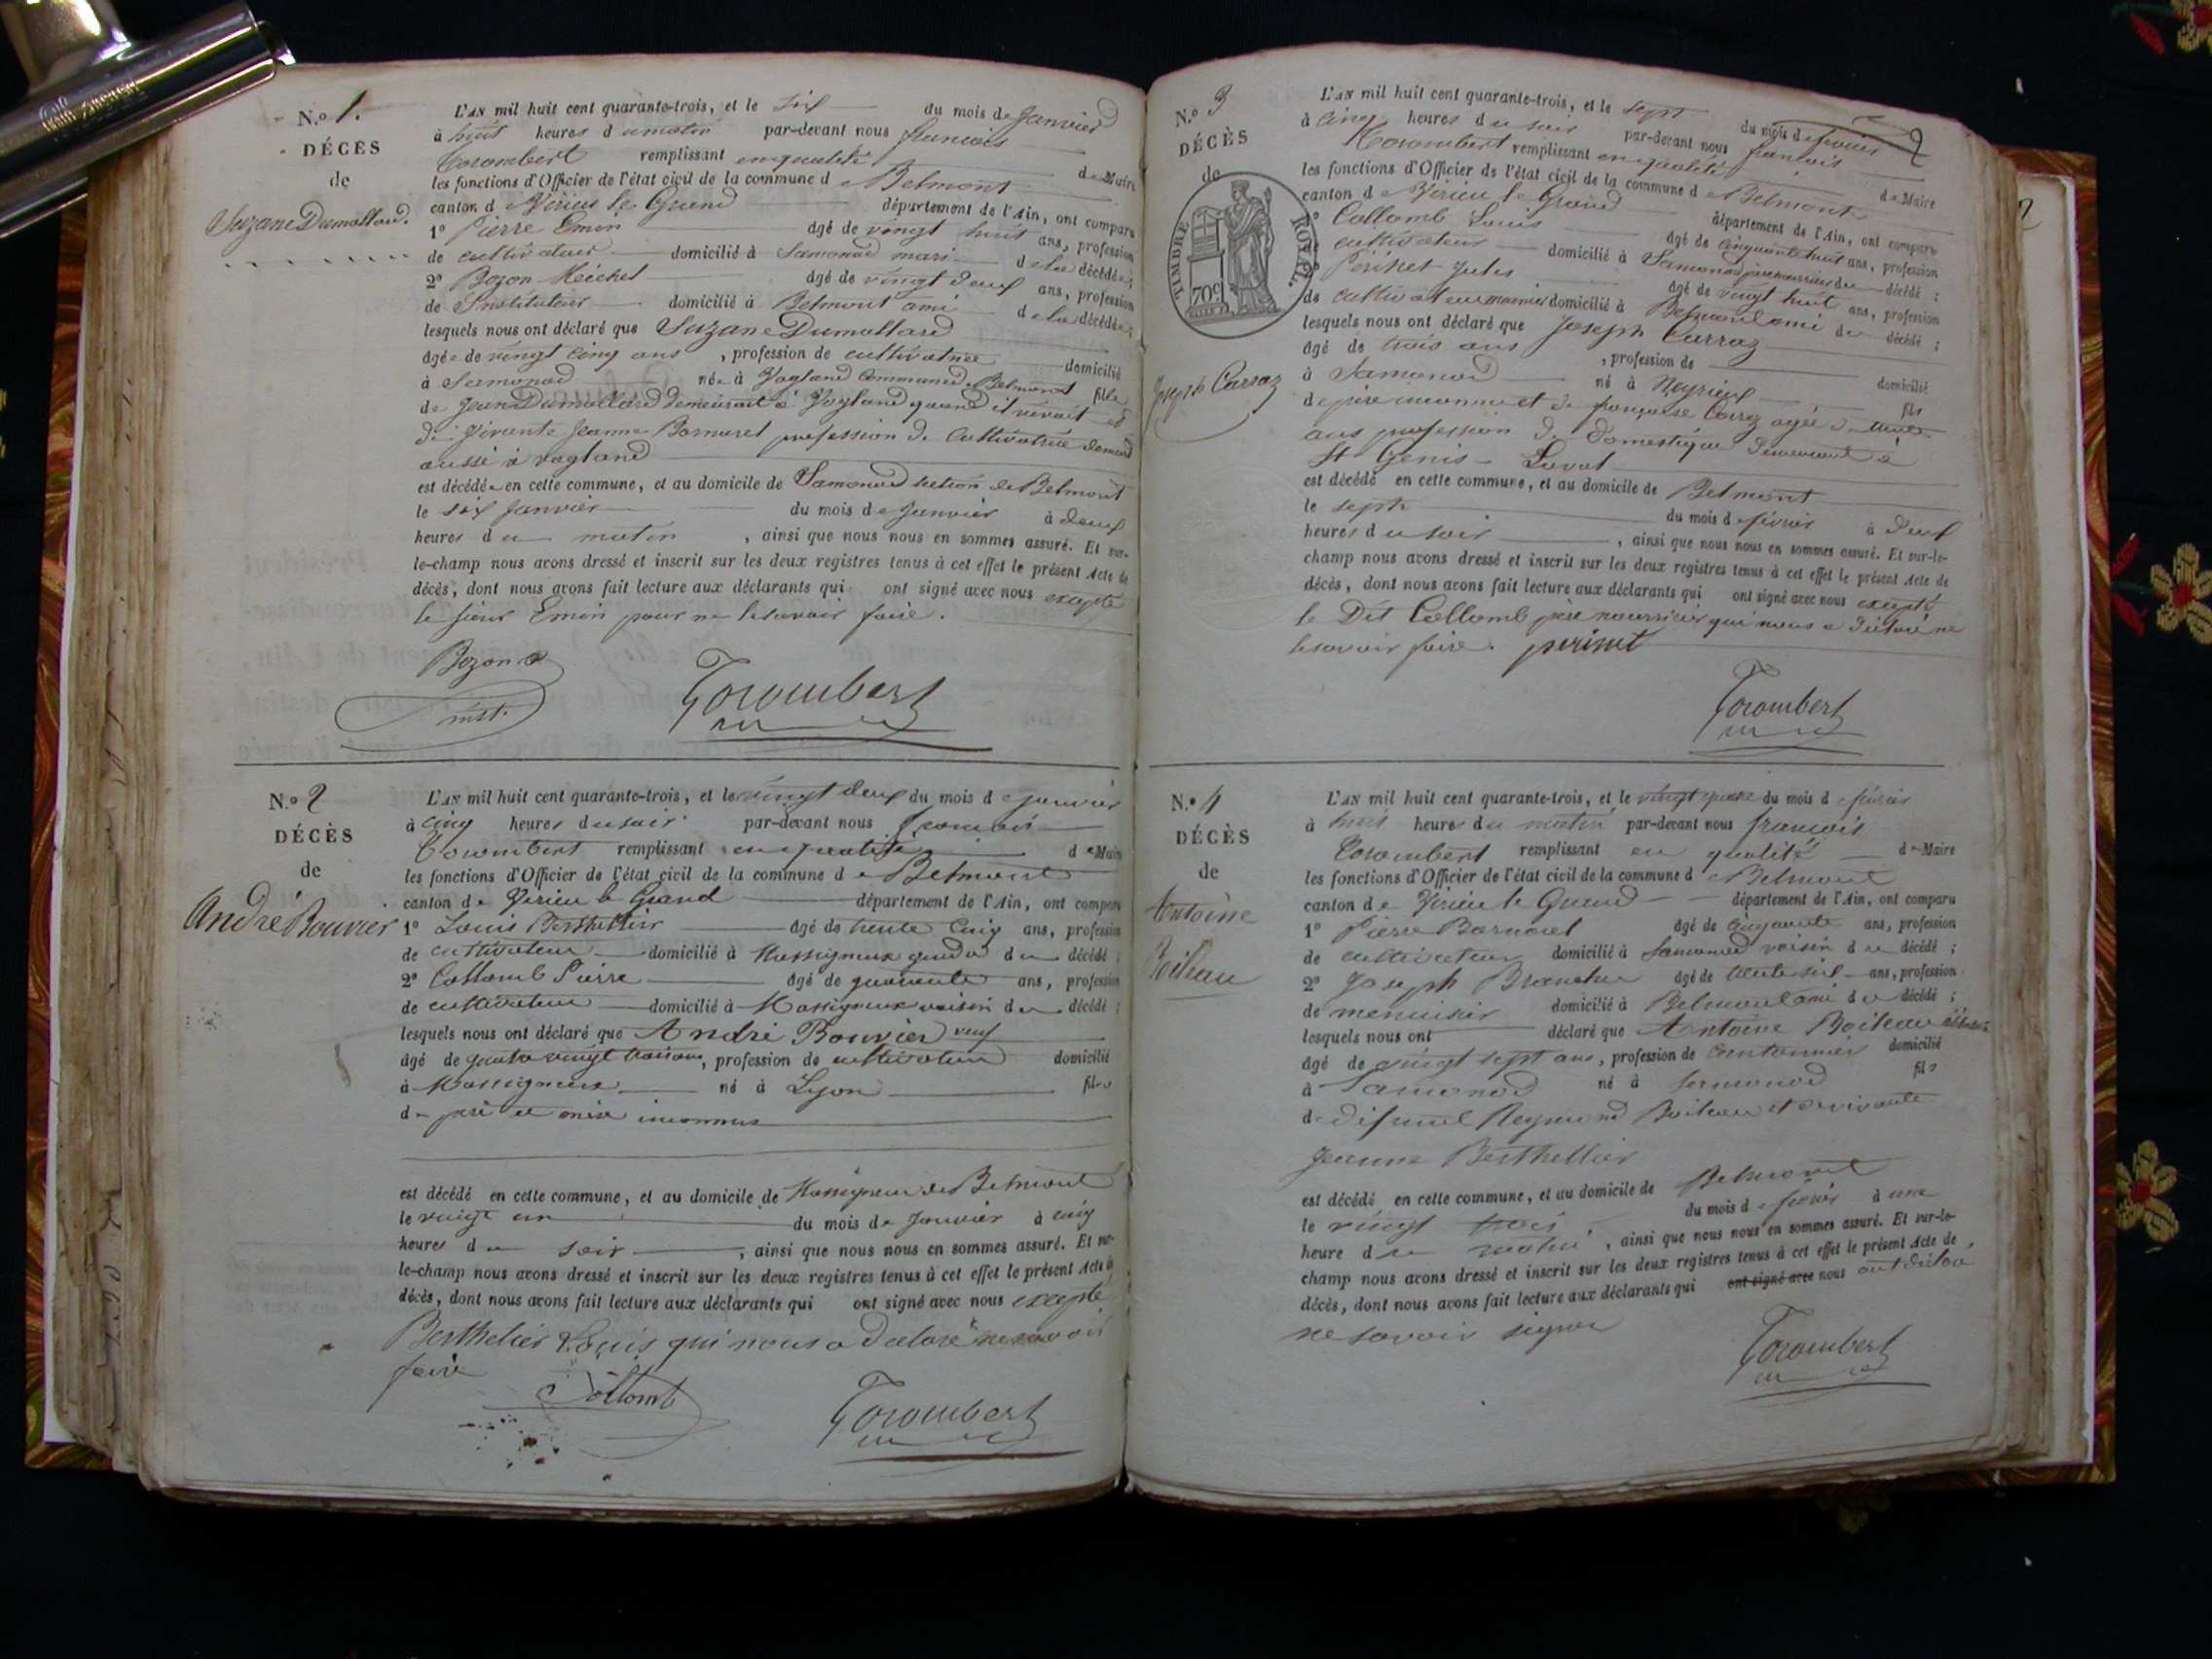 N.o 1.
DÉCÈS
de
Suzane Dumollard.
L'AN mil huit cent quarante-trois, et le six du mois de Janvier
à huit heures du matin par-devant nous francois
Corombert remplissant en qualité de Maire
les fonctions d'Officier de l'état civil de la commune de Belmont
canton de Virieu le Grand département de l'Ain, ont comparu
1o Pierre Emin âgé de vingt huit ans, profession
de cultivateur domicilié à Samonod mari de la décédée;
2o Bozon Meichel âgé de vingt deux ans, profession
de Instituteur domicilié à Belmont ami de la décédée;
lesquels nous ont déclaré que Suzane Dumollard
âgée de vingt cinq ans, profession de cultivatrice domicilié
à Samonod née à Vogland Commune de Belmont fille
de Jean Dumollard demeurait à Vogland quand il vivait et
de vivante Jeanne Bornarel profession de Cultivatrice demeurant
aussi à vogland
est décédée en cette commune, et au domicile de Samonod section de Belmont
le six Janvier du mois de Janvier à deux
heures du matin, ainsi que nous nous en sommes assuré. Et sur-
le-champ nous avons dressé et inscrit sur les deux registres tenus à cet effet le présent Acte de
décès, dont nous avons fait lecture aux déclarants qui ont signé avec nous excepté
le sieur Emin pour ne le savoir faire.
Bozon
inst.
Corombert
N.o 2
DÉCÈS
de
André Bouvier
L'AN mil huit cent quarante-trois, et le vingt deux du mois de Janvier
à cinq heures du soir par-devant nous francois
Corombert remplissant en qualité de Maire
les fonctions d'Officier de l'état civil de la commune de Belmont
canton de Virieu le Grand département de l'Ain, ont comparu
1o Louis Berthellier âgé de trente cinq ans, profession
de cultivateur domicilié à Massigneux du décédé;
2o Collomb Pierre âgé de quarante ans, profession
de cultivateur domicilié à Massigneux voisin du décédé;
lesquels nous ont déclaré que André Bouvier veuf
âgé de quatre vingt trois ans, profession de cultivateur domicilié
à Massigneux né à Lyon fils
de père et mère inconnus
est décédé en cette commune, et au domicile de Massigneux de Belmont
le vingt un du mois de Janvier à cinq
heures du soir, ainsi que nous nous en sommes assuré. Et sur-
le-champ nous avons dressé et inscrit sur les deux registres tenus à cet effet le présent Acte de
décès, dont nous avons fait lecture aux déclarants qui ont signé avec nous excepté
Berthelier Louis qui nous a déclaré ne savoir
faire
Collomb
Corombert
N.o 3
DÉCÈS
de
TIMBRE ROYAL.
70c
Joseph Carraz
2
L'AN mil huit cent quarante-trois, et le sept du mois de fevrier
à cinq heures du soir par-devant nous francois
Corombert remplissant en qualité de Maire
les fonctions d'Officier de l'état civil de la commune de Belmont
canton de Virieu le Grand département de l'Ain, ont comparu
1o Collomb Louis âgé de cinquante huit ans, profession
cultivateur domicilié à Samonod père nourricier du décédé;
Périnet Jules âgé de vingt huit ans, profession
de cultivateur domicilié à Belmont ami du décédé;
lesquels nous ont déclaré que Joseph Carraz
âgé de trois ans, profession de domicilié
à Samonod né à Neyrieux fils
de père inconnu et de françoise Carraz agée de
ans profession de domestique demeurant à
St Genis Laval
est décédé en cette commune, et au domicile de Belmont
le sept du mois de février à deux
heures du soir, ainsi que nous nous en sommes assuré. Et sur-le-
champ nous avons dressé et inscrit sur les deux registres tenus à cet effet le présent Acte de
décès, dont nous avons fait lecture aux déclarants qui ont signé avec nous excepté
le Dit Collomb père nourricier qui nous a déclaré ne
le savoir faire. perinet
Corombert
N.o 4
DÉCÈS
de
Antoine
Boileau
L'AN mil huit cent quarante-trois, et le vingt quatre du mois de fevrier
à huit heures du matin par-devant nous francois
Corombert remplissant en qualité de Maire
les fonctions d'Officier de l'état civil de la commune de Belmont
canton de Virieu le Grand département de l'Ain, ont comparu
1o Pierre Bornarel âgé de cinquante ans, profession
de cultivateur domicilié à Samonod voisin du décédé;
2o Joseph Branche âgé de trente six ans, profession
de menuisier domicilié à Belmont ami du décédé;
lesquels nous ont déclaré que Antoine Boileau
âgé de vingt sept ans, profession de Cantonnier domicilié
à Samonod né à Sermonod fils
de défunt Reymond Boileau et de vivante
Jeanne Berthellier
est décédé en cette commune, et au domicile de Belmont
le vingt trois du mois de fevrier à une
heure du matin, ainsi que nous nous en sommes assuré. Et sur-le-
champ nous avons dressé et inscrit sur les deux registres tenus à cet effet le présent Acte de
décès, dont nous avons fait lecture aux déclarants qui ont signé avec nous ont déclaré
ne savoir signer
Corombert